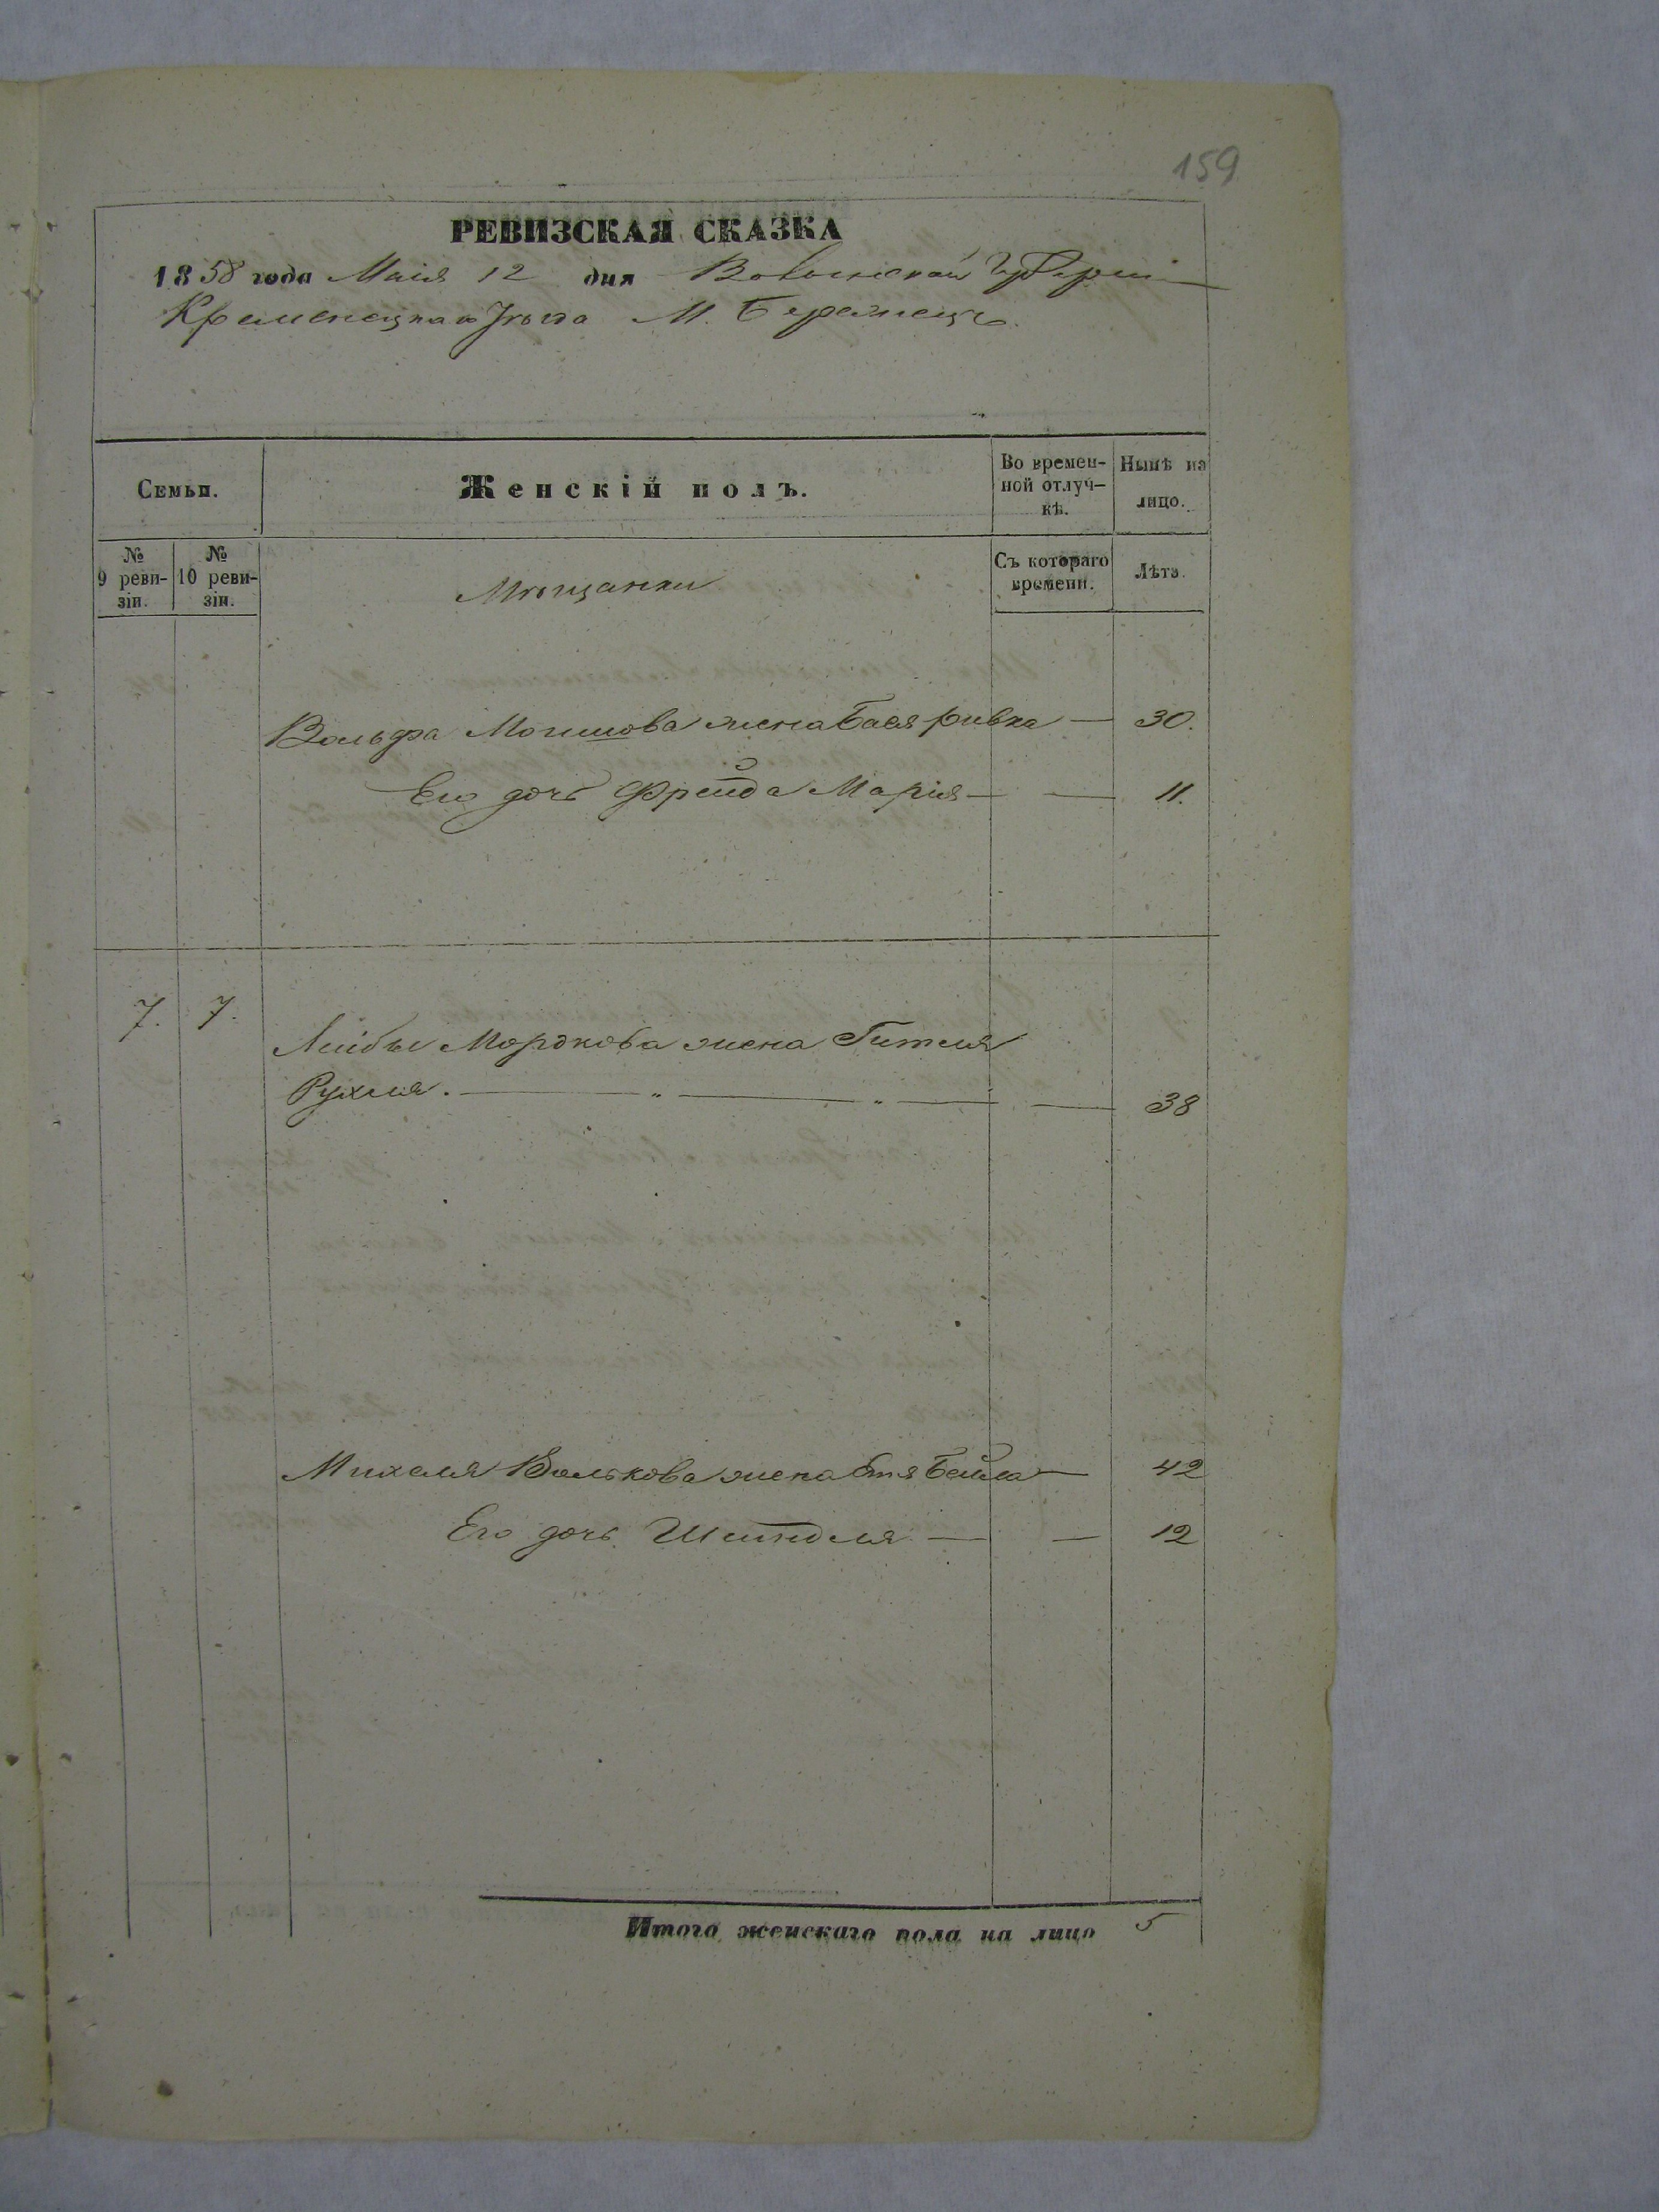 159
РЕВИЗСКАЯ СКАЗКА
1858 года Маія 12 дня Волынской Губерніи
Кременецкаго Уѣзда М. Бережецъ.
Семьи.
Женскій полъ.
Во времен-
ной отлуч-
кѣ.
Нынѣ на
лицо.
№
9 реви-
зіи.
№
10 реви-
зіи.
Мѣщанки
Съ котораго
времени.
Лѣта.
Вольфа Мошкова жена Бася Ривка — 30.
Его дочь Фрейда Марія — — 11.
7. 7. Лейбы Мордкова жена Гитля
Рухля. — " — " — — 38
Михеля Волькова жена Бейла — 42
Его дочь Шейндля — — 12
Итого женскаго пола на лицо 5